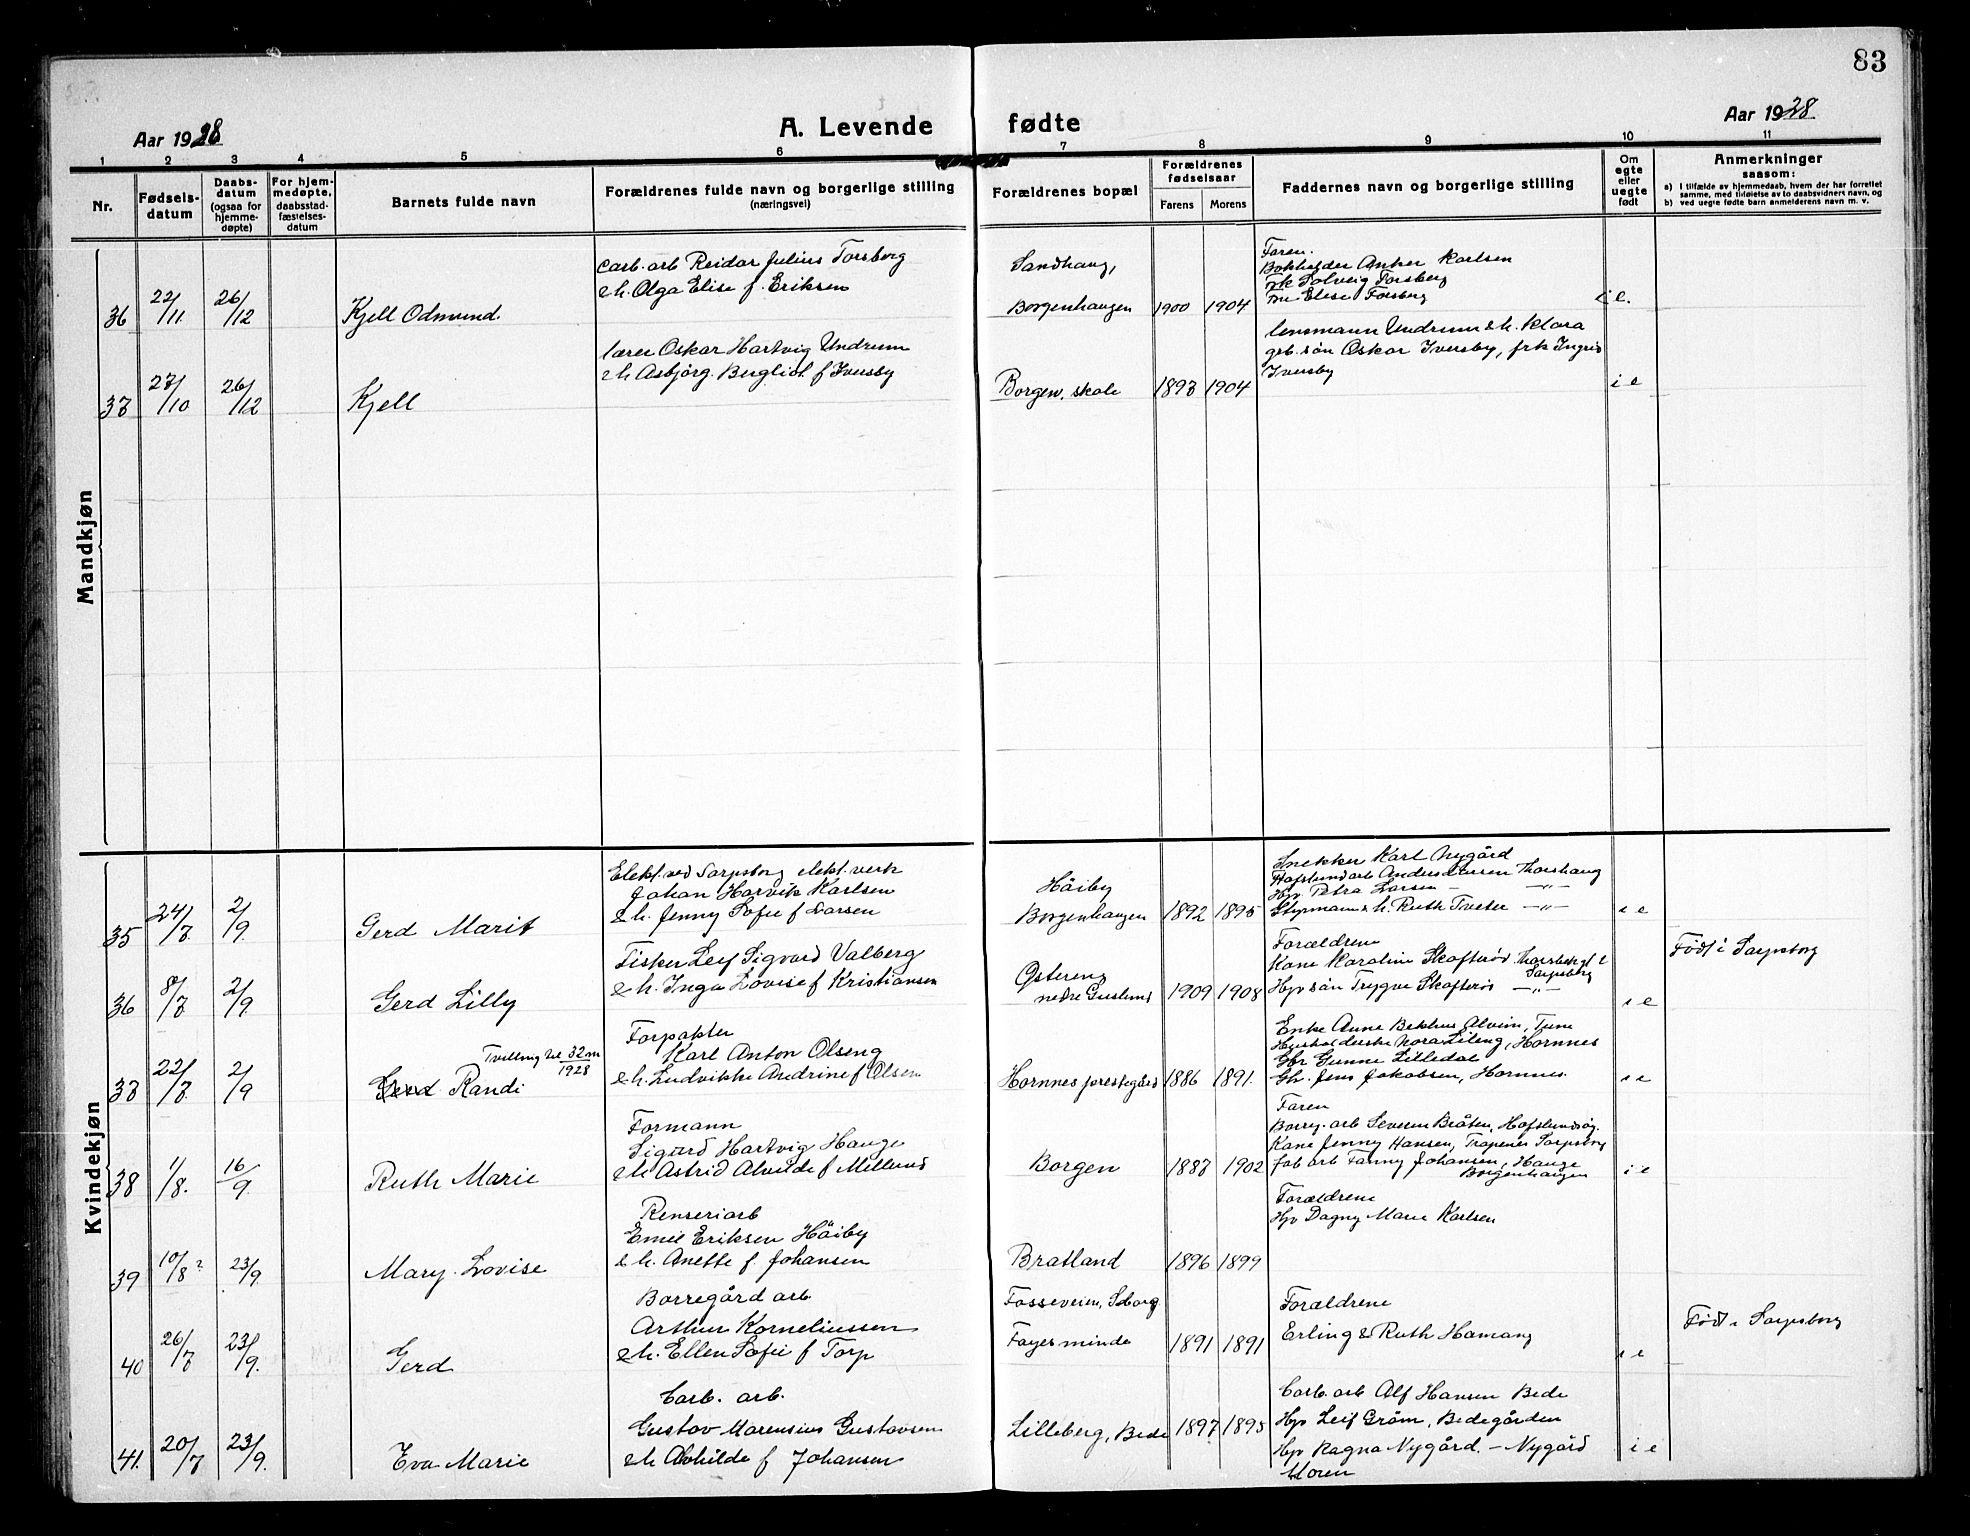 83
Aar 1928
A. Levende fødte
Aar 1928
1 2 3 4 5 6 7 8 9 10 11
Nr.
Fødsels-
datum
Daabs-
datum
(ogsaa for
hjemme-
døpte)
For hjem-
medøpte,
daabsstad-
fæstelses-
datum
Barnets fulde navn
Forældrenes fulde navn og borgerlige stilling
(næringsvei)
Forældrenes bopæl
Forældrenes
fødselsaar
Farens Morens
Faddernes navn og borgerlige stilling
Om
egte
eller
uegte
født
Anmerkninger
saasom:
a) I tilfælde av hjemmedaab, hvem der har forrettet
samme, med tilføielse av to daabsvidners navn, og
b) ved uegte fødte barn anmelderens navn m. v.
Mandkjøn
36
22/11
26/12
Kjell Odmund.
Carb. arb Reidar Julius Forsberg
& h. Olga Elise f. Eriksen
Sandhaug,
Borgenhaugen
1900 1904
Faren.
Bokholder Anker Karlsen
Frk Solveig Forsberg
Fru Elise Forsberg
i e.
37
27/10
26/12
Kjell
lærer Oskar Hartvig Undrum
& h Asbjörg Bergliot f Iversby
Borgen, skole
1897 1904
lensmann Undrum & h. Klara
gb. sön Oskar Iversby, frk Ingrid
Iversby
i e
Kvindekjøn
35
24/7
2/9
Gerd Marit
Elekt. ved Sarpsborg elekt. verk
Johan Harvik Karlsen
& h. Jenny Sofie f Larsen
Höiby
Borgenhaugen
1892 1895
Snekker Karl Nygård
Hafslundarb Anders Larsen Thorshaug
Hp Petra Larsen — " —
Styrmann & h. Ruth Tveter — " —
i e
36
8/7
2/9
Gerd Lilly
Fisker Leif Sigvard Valberg
& h. Inga Lovise f Kristiansen
Östereng
nedre Gusland
1909 1908
Forældrene
Kone Karoline Skofteröd
Sarpsborg
Hp sön Trygve Skofteröd — " —
i e
Född i Sarpsborg
37
22/7
2/9
Tvilling til 32 m
1928
Gerd Randi
Forpakter
Karl Anton Olseng
& h. Ludvikke Andrine f Olsen
Hornnes prestegård
1886 1891.
Enke Anne Bekkhus Alvim, Tune
Husholderske Nora Lileng, Hornnes
Gbr Gunne Lilledal
Gbr. Jens Jakobsen, Hornnes.
i e
38
1/8.
16/9.
Ruth Marie
Formann
Sigurd Hartvig Hauge
& h Astrid Alvilde f Millund
Borgen
1887 1902
Faren
Borreg. arb Severin Bråten, Hafslundsög.
Kone Jenny Hansen, Trapenes Sarpsborg
fab arb Fanny Johansen, Hauge
Borgenhaugen
i e
39
10/8 ?
23/9.
Mary Lovise
Renseriarb
Emil Eriksen Höiby
& h. Anette f. Johansen
Bratland
1896 1899
Forældrene
Hp Dagny Marie Karlsen
40
26/7
23/9.
Gerd
Borregård arb.
Arthur Korneliussen
& h. Ellen Sofie f Torp
Fosseveien, Sborg
Fagerminde
1891 1891
Forældrene
Erling & Ruth Hamang
i e
Född i Sarpsborg
41.
20/7
23/9.
Eva Marie
Carb. arb.
Gustav Marensius Gustavsen
& h Alvhilde f Johansen
Lilleberg, Bede
1897 1895
Carb. arb Alf Hansen Bede
Hp Leif Gröm, Bedegården
Hp Ragna Nygård. – Nygård
Moren
i e